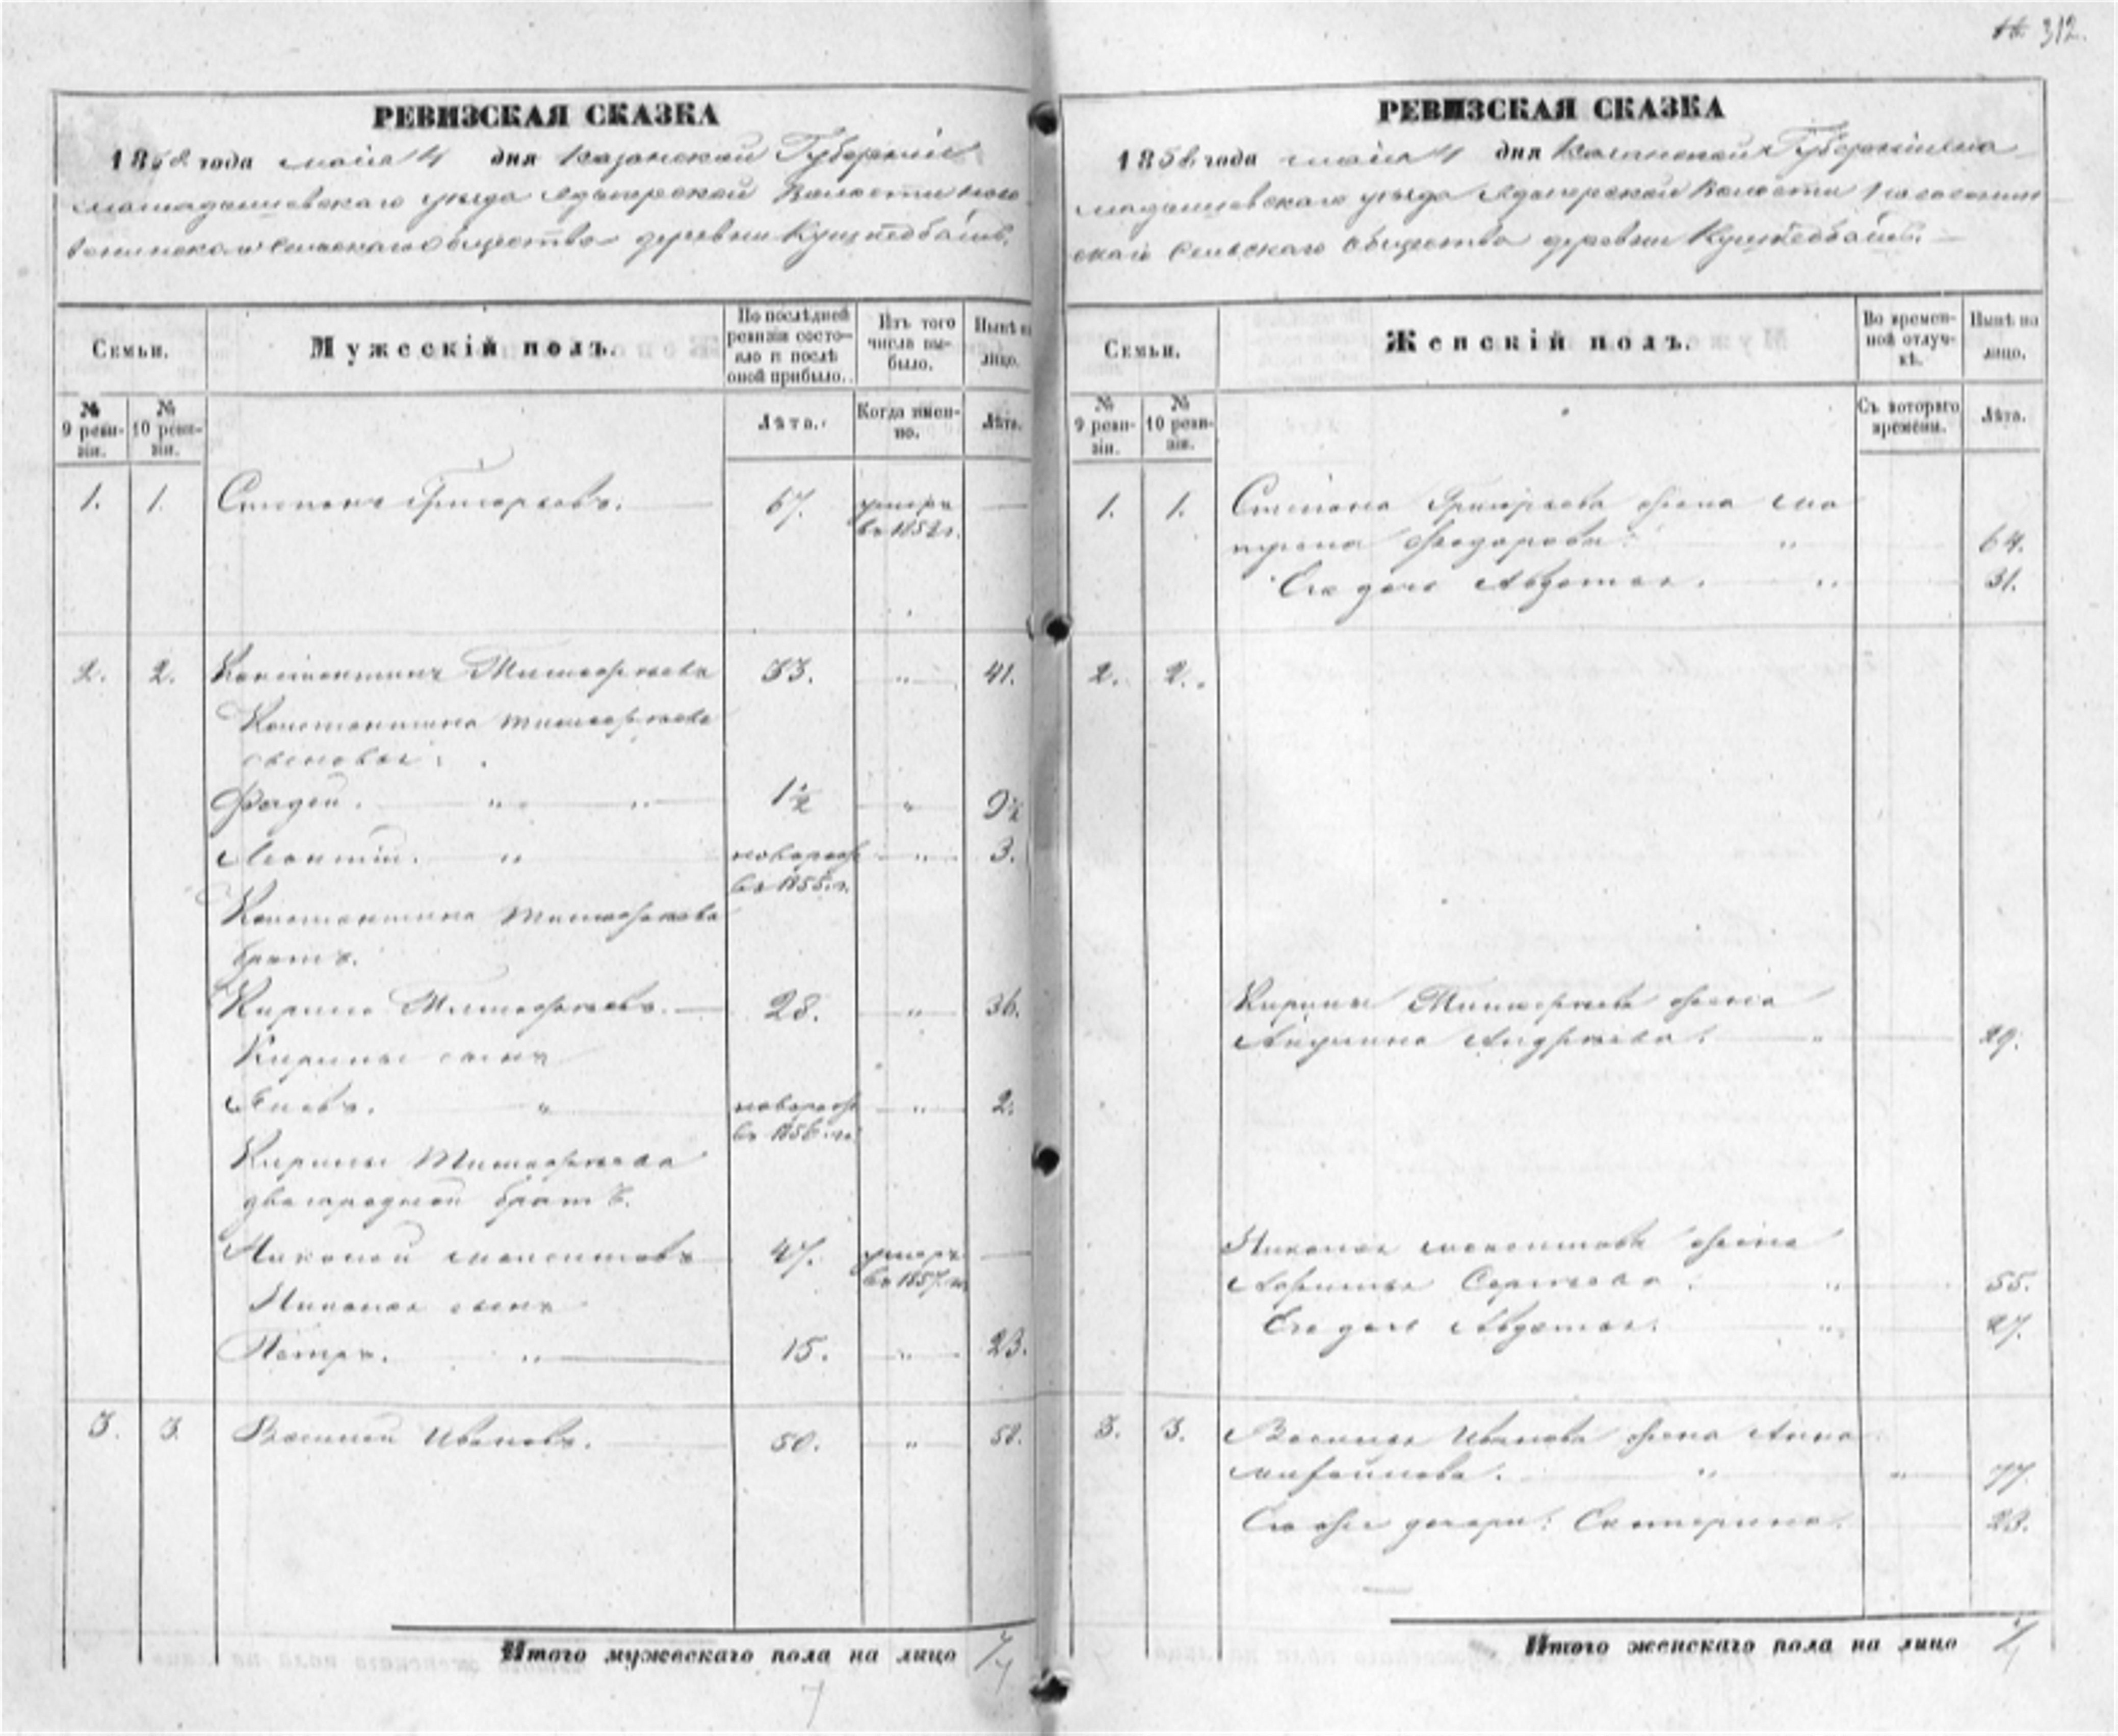 312.
РЕВИЗСКАЯ СКАЗКА
1858 года мая 4 дня Казанской Губернии
уезда Волости
Сельскаго общества деревни
Семьи.
Мужескій полъ.
По послѣдней ревизіи состояло и послѣ оной прибыло.
Изъ того числа выбыло.
Нынѣ на лицо.
№ 9 ревизіи.
№ 10 ревизіи.
Лѣта.
Когда именно.
Лѣта.
1. 1. Степанъ Григорьевъ. 67. умеръ —
въ 1852 г.
2. 2. Константинъ Тимофѣевъ 33. „ 41.
Константина Тимофѣева
сыновья:
Фадей. „ „ 1½ „ 9½
Леонтій. „ новорож „ 3.
въ 1855 г.
Константина Тимофѣева
братъ.
Кирило Тимофѣевъ. 28. „ 36.
Кирилы сынъ
Яковъ. „ новорож „ 2.
въ 1856 г.
Кирилы Тимофѣева
двоюродной братъ.
Николай 47. умеръ —
въ 1857 г.
Николая сынъ
Петръ. „ 15. „ 23.
3. 3. Василей Ивановъ. 50. „ 58.
Итого мужескаго пола на лицо 7
7
РЕВИЗСКАЯ СКАЗКА
1858 года мая 4 дня Казанской Губерніи
уезда Волости
Сельскаго общества деревни
Семьи.
Женскій полъ.
Во временной отлучкѣ.
Нынѣ на лицо.
№ 9 ревизіи.
№ 10 ревизіи.
Съ котораго времени.
Лѣта.
1. 1. Степана Григорьева жена Ма
трена Федорова. „ 64.
Его дочь Авдотья. „ 31.
2. 2.
Кирилы Тимофѣева жена
Акулина Андрѣева. „ 29.
Николая жена
Сергѣева. „ 55.
Его дочь Авдотья. „ 27.
3. 3. Василья Иванова жена Анна
Михайлова. „ „ 77.
Его же дочери: Екатерина. 23.
Итого женскаго пола на лицо 7